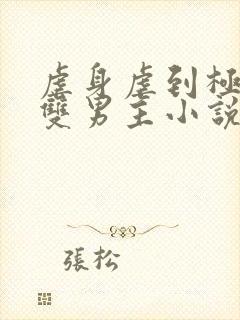 虐身虐到極
雙男主小說
張松